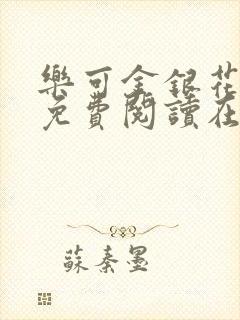 樂可金銀花
免費閱讀在
蘇秦墨